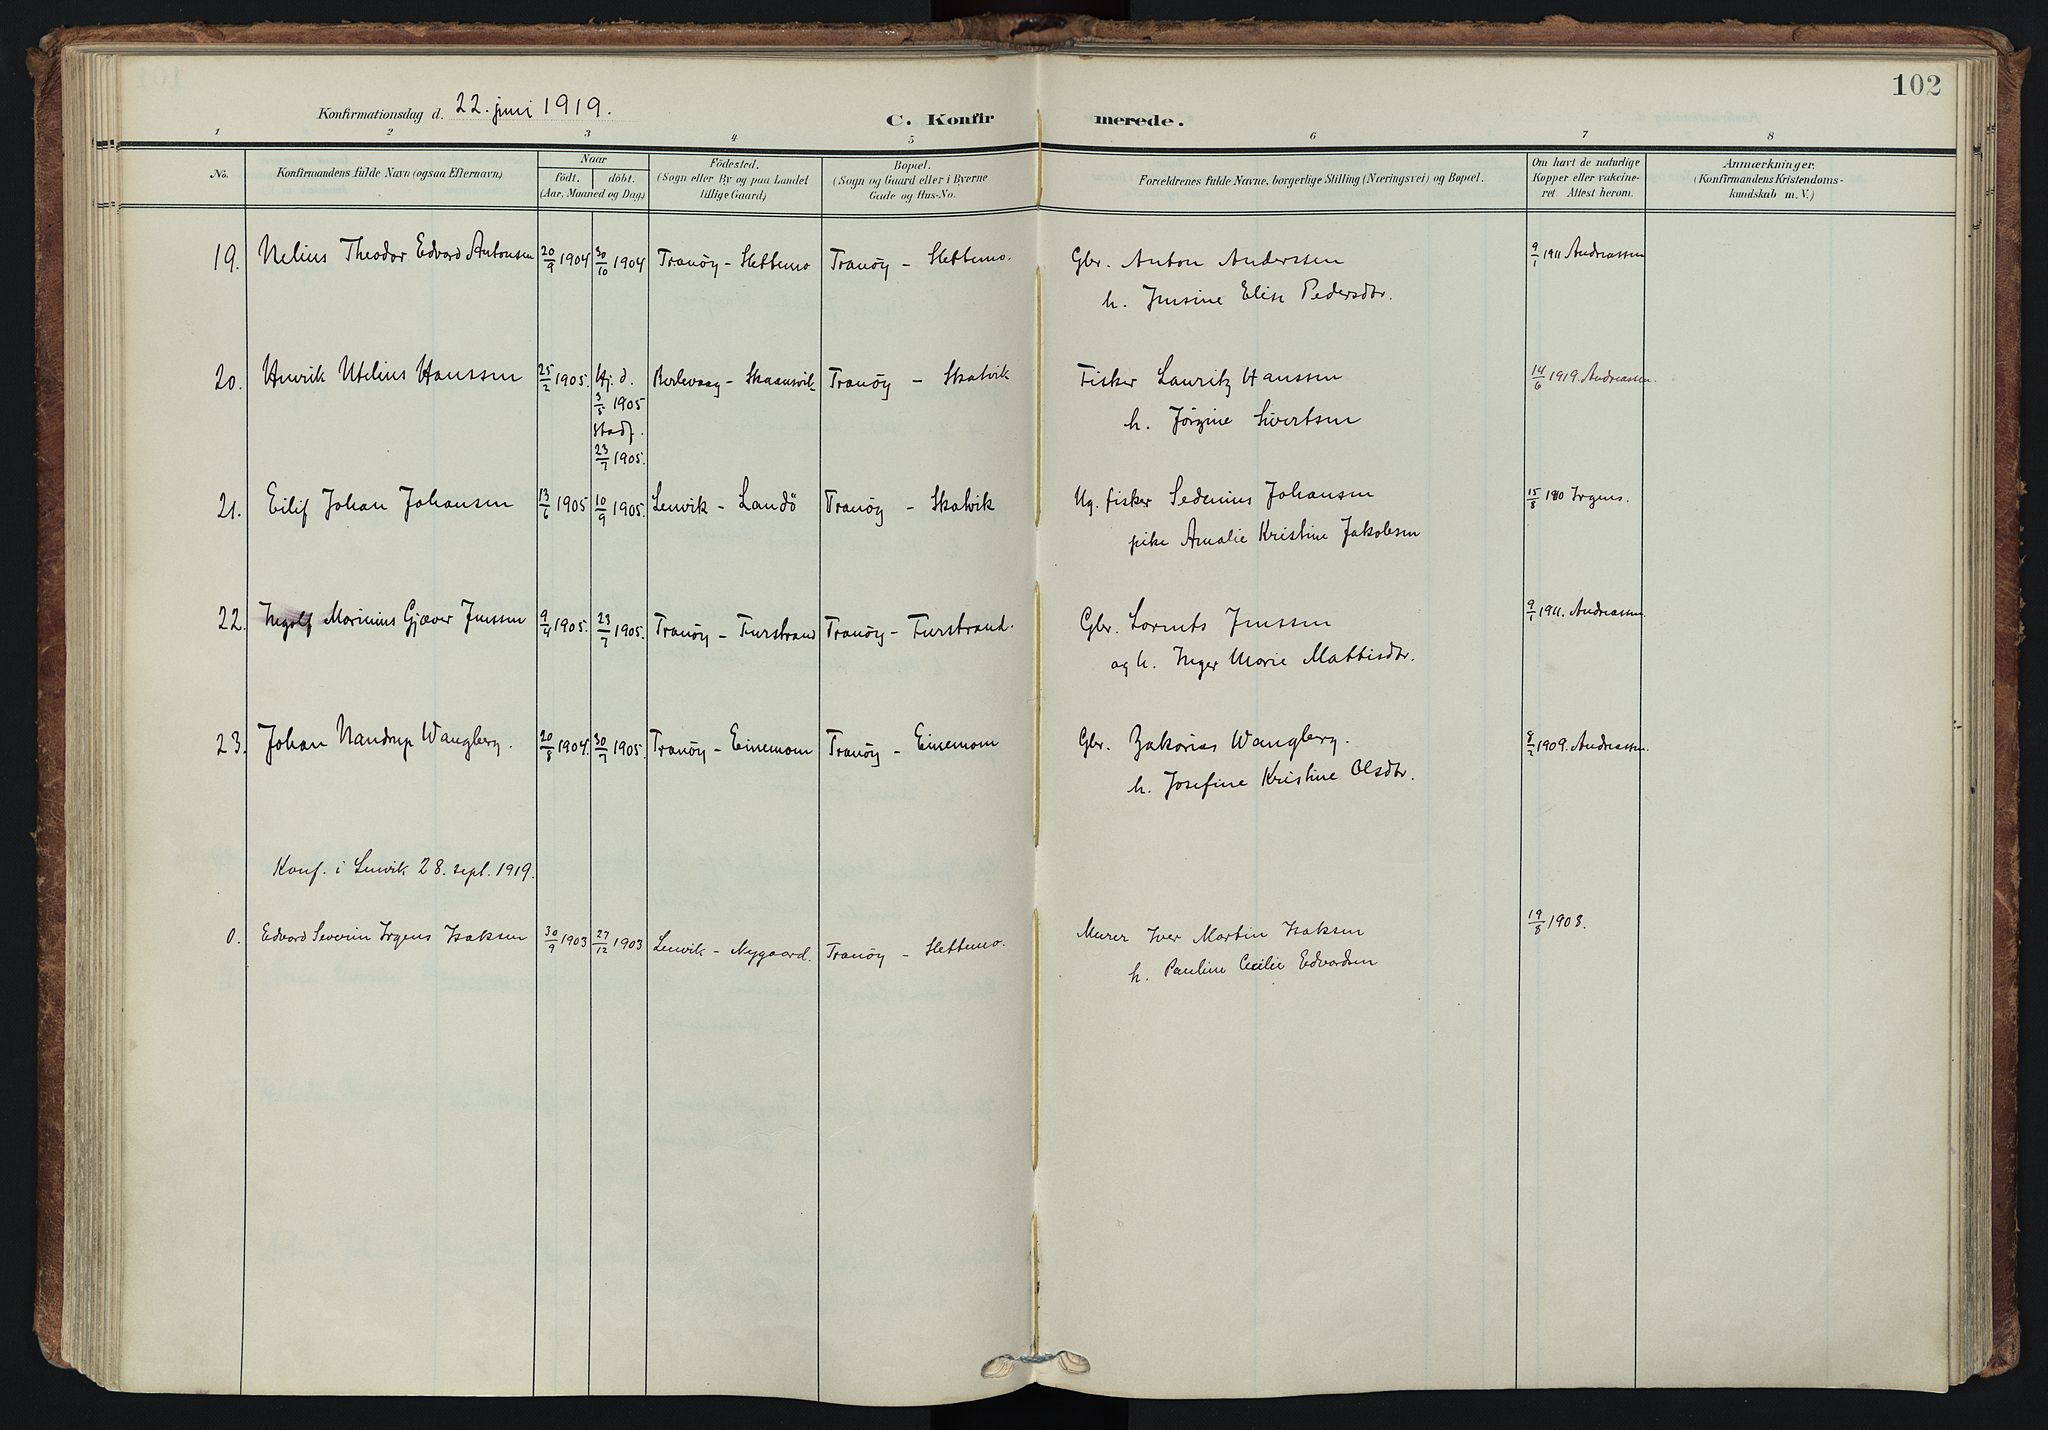 102
Konfirmationsdag d. 22. juni 1919.
C. Konfirmerede.
1 2 3 4 5 6 7 8
No.
Konfirmandens fulde Navn (ogsaa Efternavn).
Naar
födt. döbt.
(Aar, Maaned og Dag)
Födested.
(Sogn eller By og paa Landet
tillige Gaard)
Bopæl.
(Sogn og Gaard eller i Byerne
Gade og Hus-No.
Forældrenes fulde Navne, borgerlige Stilling (Næringsvei) og Bopæl.
Om havt de naturlige
Kopper eller vakcine-
ret. Attest herom.
Anmærkninger.
(Konfirmandens Kristendoms-
kundskab m. V.)
19. Nelius Theodor Edvard Antonsen 20/9 1904 30/10 1904 Tranöy - Slettemo Tranöy - Slettemo. Gbr. Anton Anderssen 9/1 1911 Andreassen
h. Jensine Elise Pedersdtr.
20. Henrik Utelius Hanssen 25/2 1905. Hj. d. Berlevaag - Skaansvik Tranöy - Skatvik Fisker Lauritz Hanssen 14/6 1919. Andreassen.
3/5 1905
h. Jørgine Sivertsen
Stadf.
23/7 1905.
21. Eilif Johan Johansen 13/6 1905 10/9 1905. Lenvik - Landö Tranöy - Skatvik Ug. fisker Sedenius Johansen 15/8 1910 Irgens.
pike Amalie Kristine Jakobsen
22. Ingolf Marinius Gjæver Jenssen 9/4 1905. 23/7 1905. Tranöy - Furstrand Tranöy - Furstrand. Gbr. Lornts Jenssen 9/1 1911. Andreassen
og h. Inger Marie Mattisdtr.
23. Johan Nandrup Wangberg. 20/8 1904. 30/7 1905. Tranöy - Einemom Tranöy - Einemom Gbr. Zakarias Wangberg. 8/2 1909. Andreassen.
h. Josefine Kristine Olsdtr.
Konf. i Lenvik 28. sept. 1919.
0. Edvard Severin Irgens Isaksen 30/9 1903 27/12 1903 Lenvik - Nygaard. Tranöy - Slettemo. Murer Iver Martin Isaksen 19/8 1908.
h. Pauline Cecilie Edvardsen